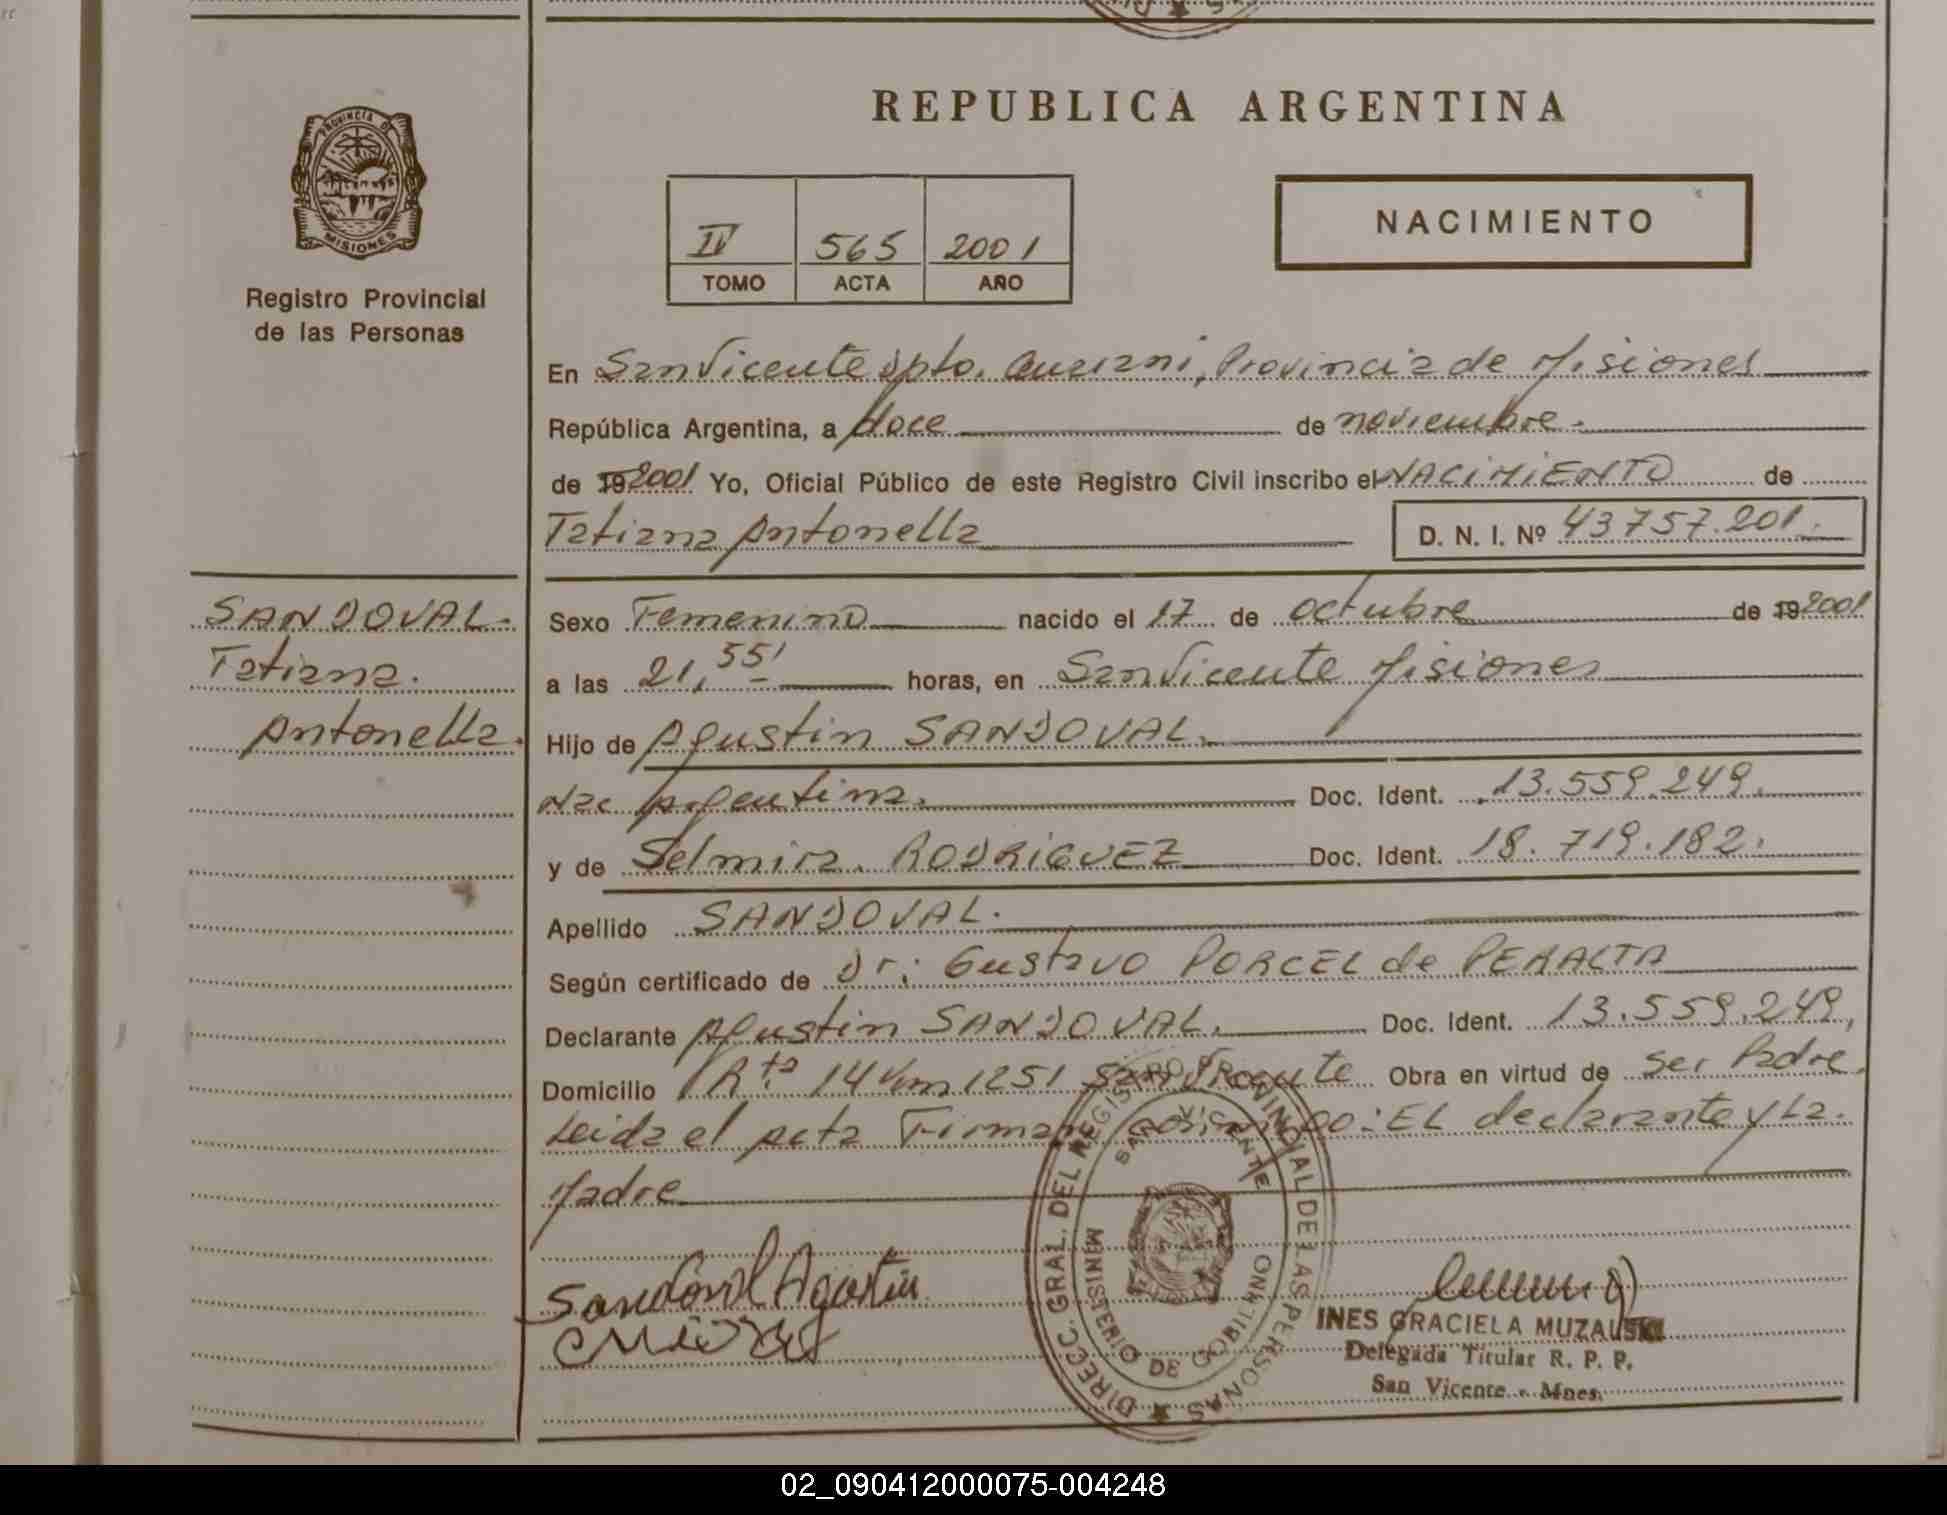 REPUBLICA ARGENTINA
PROVINCIA DE
MISIONES
Registro Provincial
de las Personas
IV 565 2001
TOMO ACTA AÑO
NACIMIENTO
En San Vicente Dpto. Guarani, Provincia de Misiones
República Argentina, a doce de noviembre.
de 19 2001 Yo, Oficial Público de este Registro Civil inscribo el NACIMIENTO de
Tatiana Antonella D. N. I. Nº 43757.201.
SANDOVAL.
Tatiana.
Antonella.
Sexo Femenino nacido el 17 de octubre de 19 2001
a las 21,55' horas, en San Vicente Misiones
Hijo de Agustin SANDOVAL.
Nac Argentina. Doc. Ident. 13.559.249.
y de Selmira. RODRIGUEZ Doc. Ident. 18.719.182.
Apellido SANDOVAL.
Según certificado de Dr: Gustavo PORCEL de PERALTA
Declarante Agustin SANDOVAL. Doc. Ident. 13.559.249,
Domicilio Rta 14 Km 1251 San Vicente Obra en virtud de ser Padre.
Leida el acta Firman conmigo: EL declarante y La.
Madre
Sandoval Agustin
DIRECC. GRAL. DEL REGISTRO PROVINCIAL DE LAS PERSONAS
SAN VICENTE
MINISTERIO DE GOBIERNO
INES GRACIELA MUZALSKI
Delegada Titular R. P. P.
San Vicente - Mnes.
02_090412000075-004248